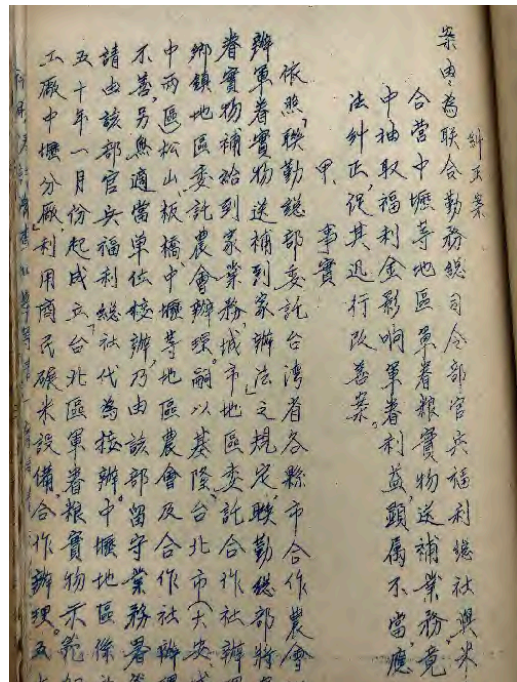 糾正案
案由：為聯合勤務總司令部官兵福利總社與米
合营中壢等地區軍眷粮實物送補業務，竟
中抽取福利金影响軍眷利益，顕属不當，應
法糾正，促其迅行改善案。
甲、事實
依照「聯勤總部委託台湾省各縣市合作農會
辦軍眷實物送補到家辦法」之規定，聯勤總部將
眷實物補給到家業務，城市地區委託合作社辦
鄉鎮地區委託農會辦理。嗣以基隆、台北市（大安
中兩區）松山、板橋、中壢等地區農會及合作社辦
不善，另無適當單位接辦，乃由該部留守業務署
請由該部官兵福利總社代為接辦。中壢地區係
五十年一月份起成立「台北區軍眷粮實物示範
工廠中壢分廠」，利用商民碾米設備，合作辦理。五